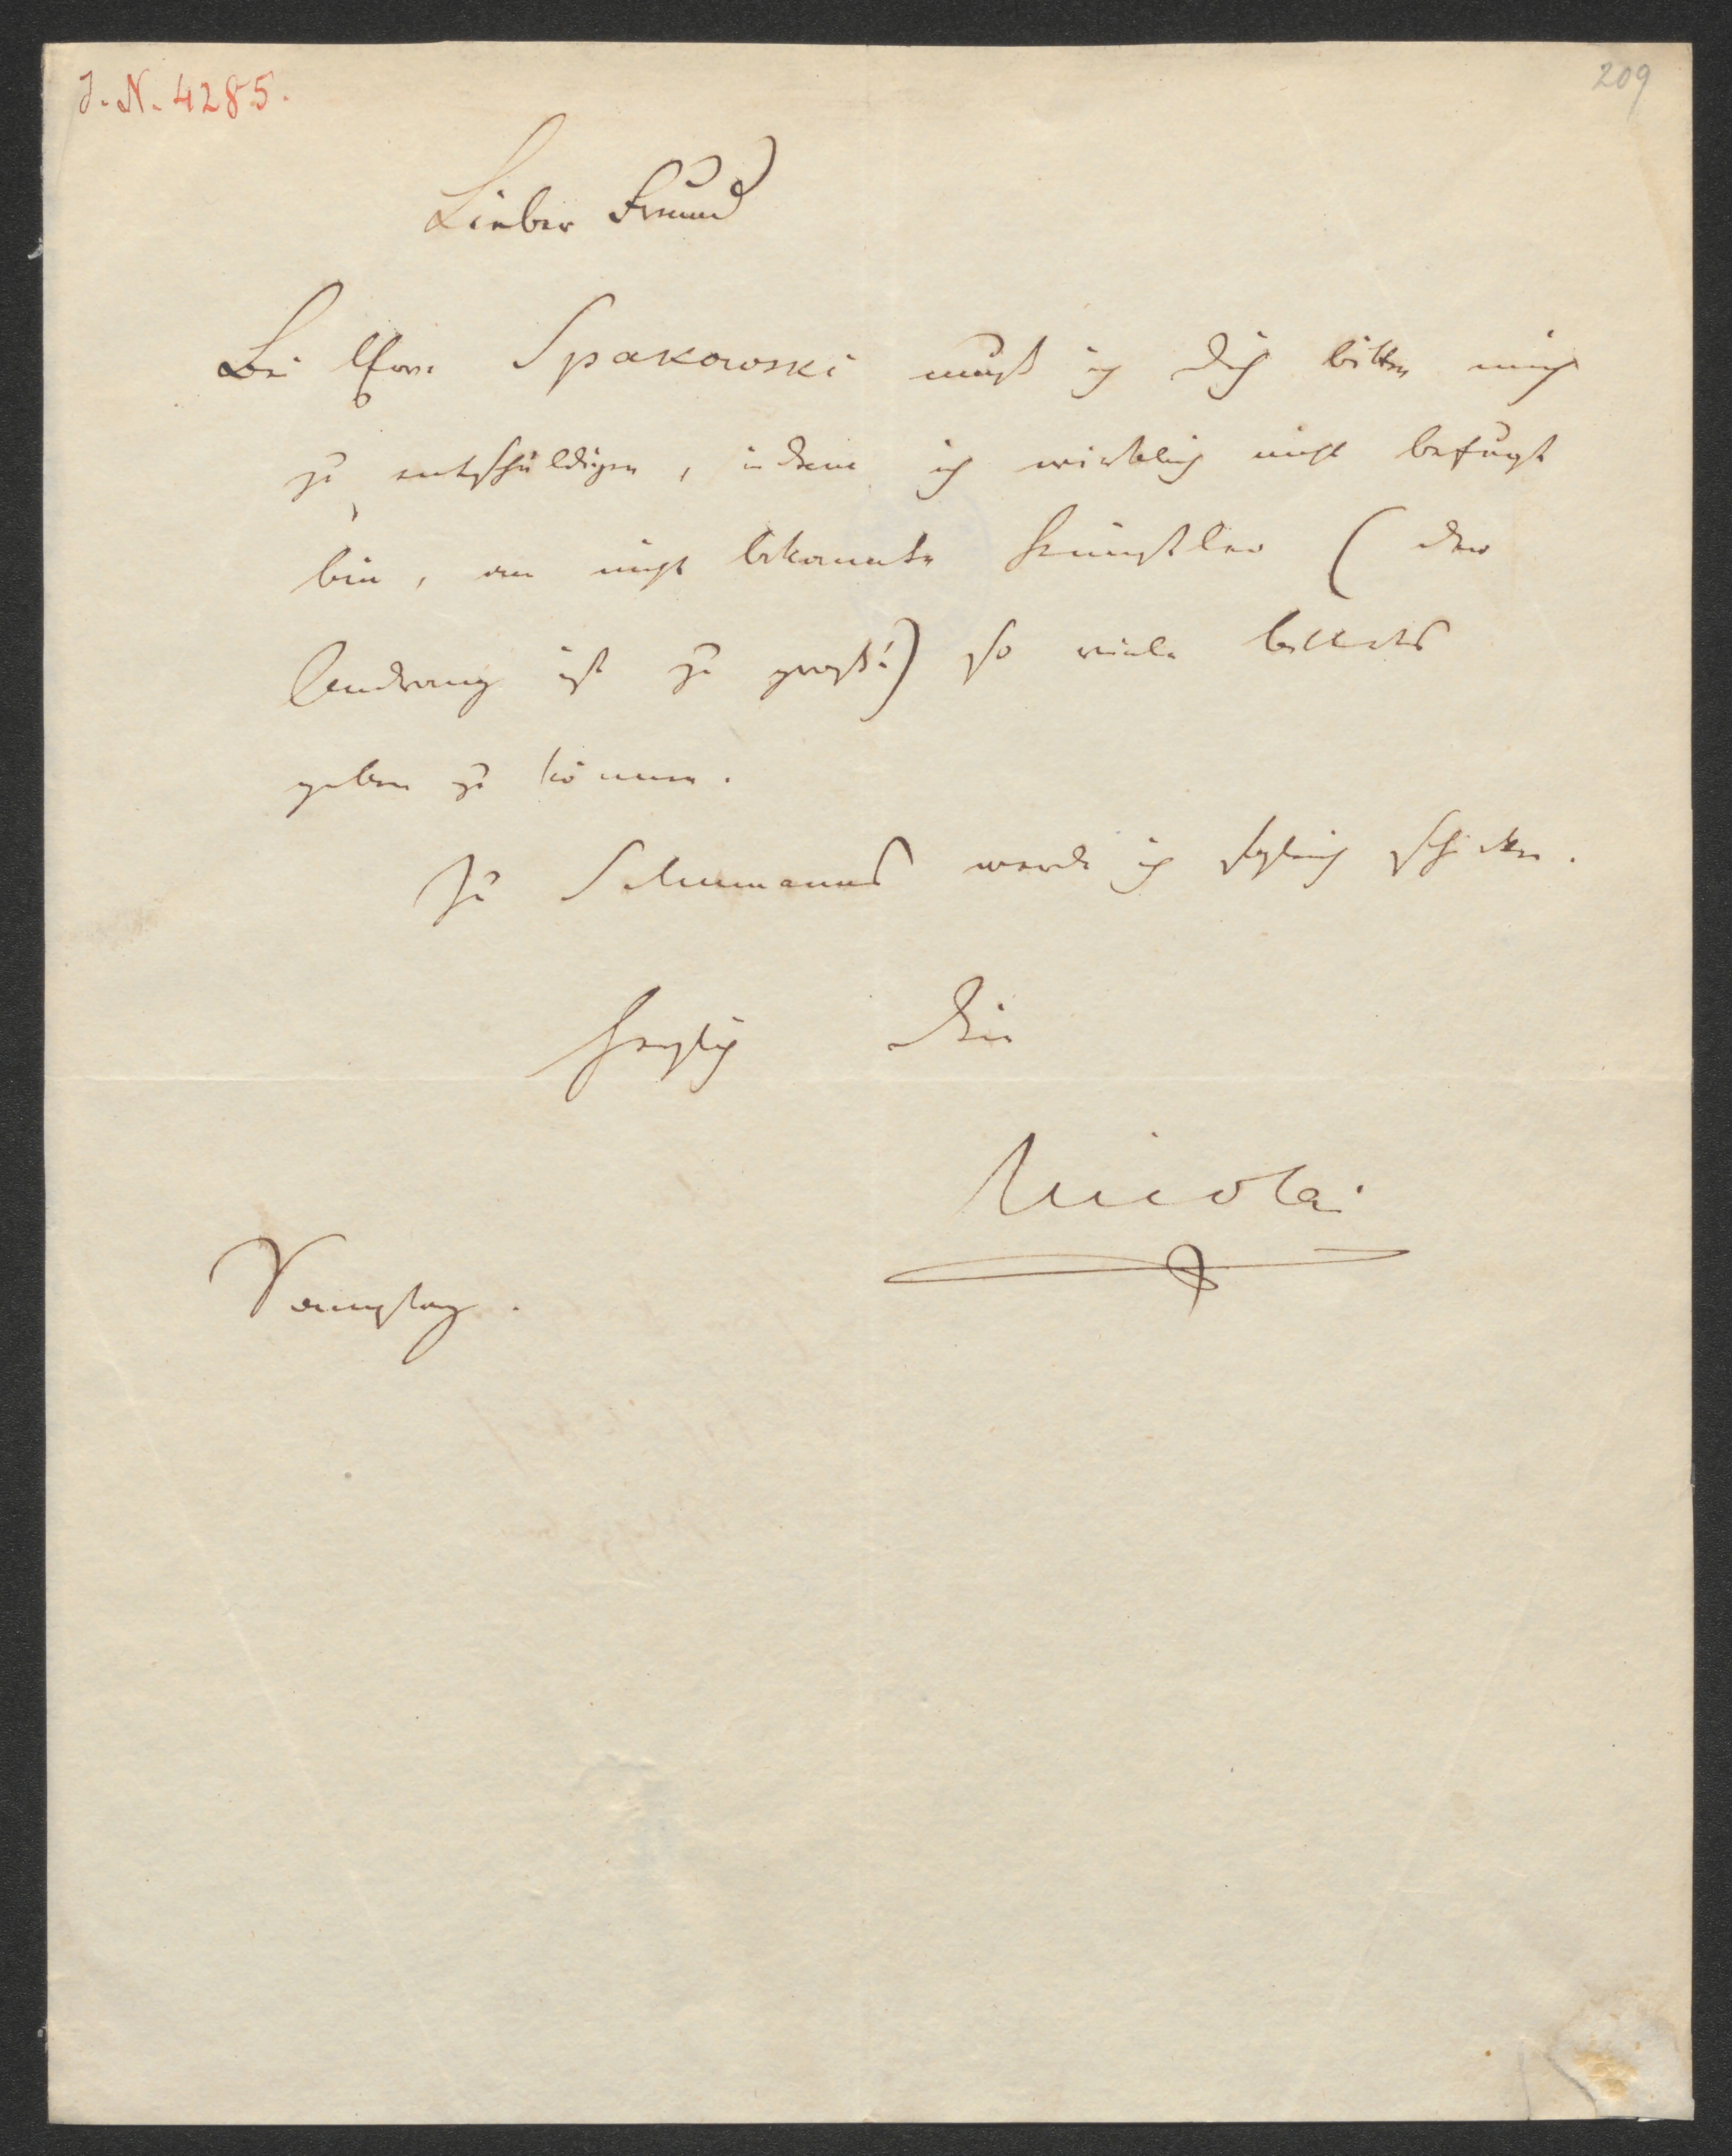 J. N. 4285.
209
Lieber Freund
Bei Hrn. Spakowski muß ich Dich bitten mich
zu entschuldigen, indem ich wirklich nicht befugt
bin, an nicht bekannte Künstler (der
Andrang ist zu groß!) so viele billets
geben zu können.
Zu Schumanns werde ich sogleich schicken.
Herzlich Dein
Nicolai
Samstag.